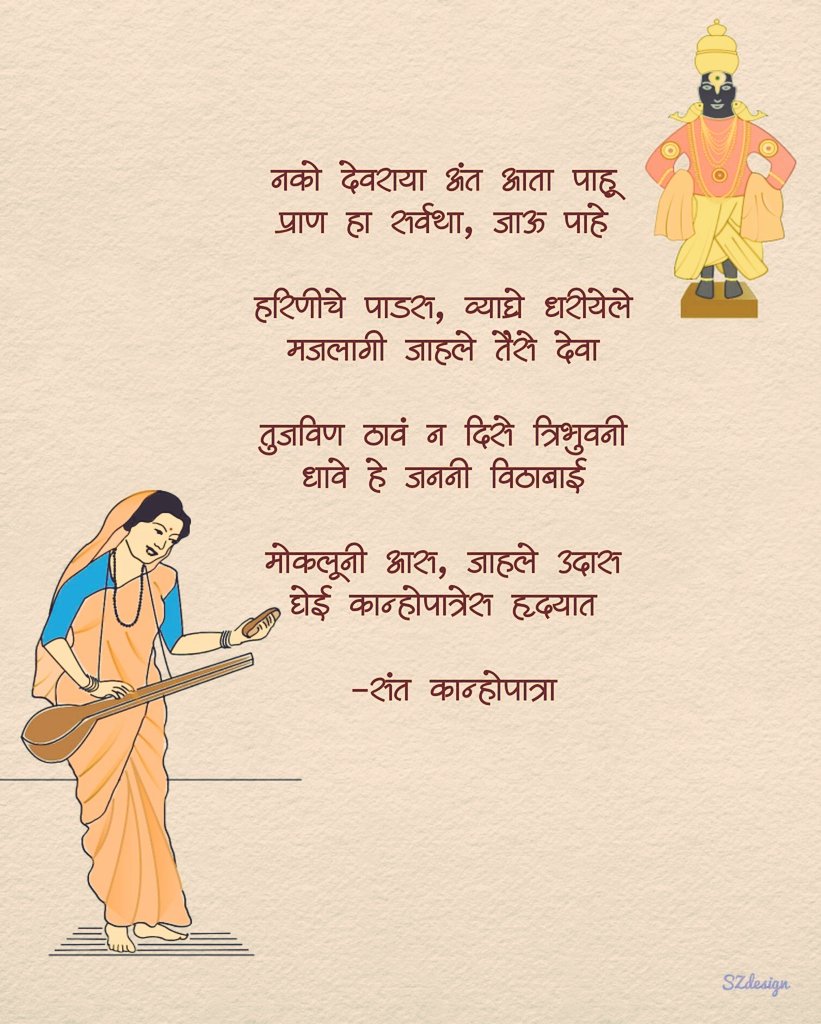 नको देवराया अंत आता पाहू
प्राण हा सर्वथा, जाऊ पाहे
हरिणीचे पाडस, व्याघ्रे धरीयेले
मजलागी जाहले तैसे देवा
तुजविण ठावं न दिसे त्रिभुवनी
धावे हे जननी विठाबाई
मोकलूनी आस, जाहले उदास
घेई कान्होपात्रेस हृदयात
-संत कान्होपात्रा
SZdesign